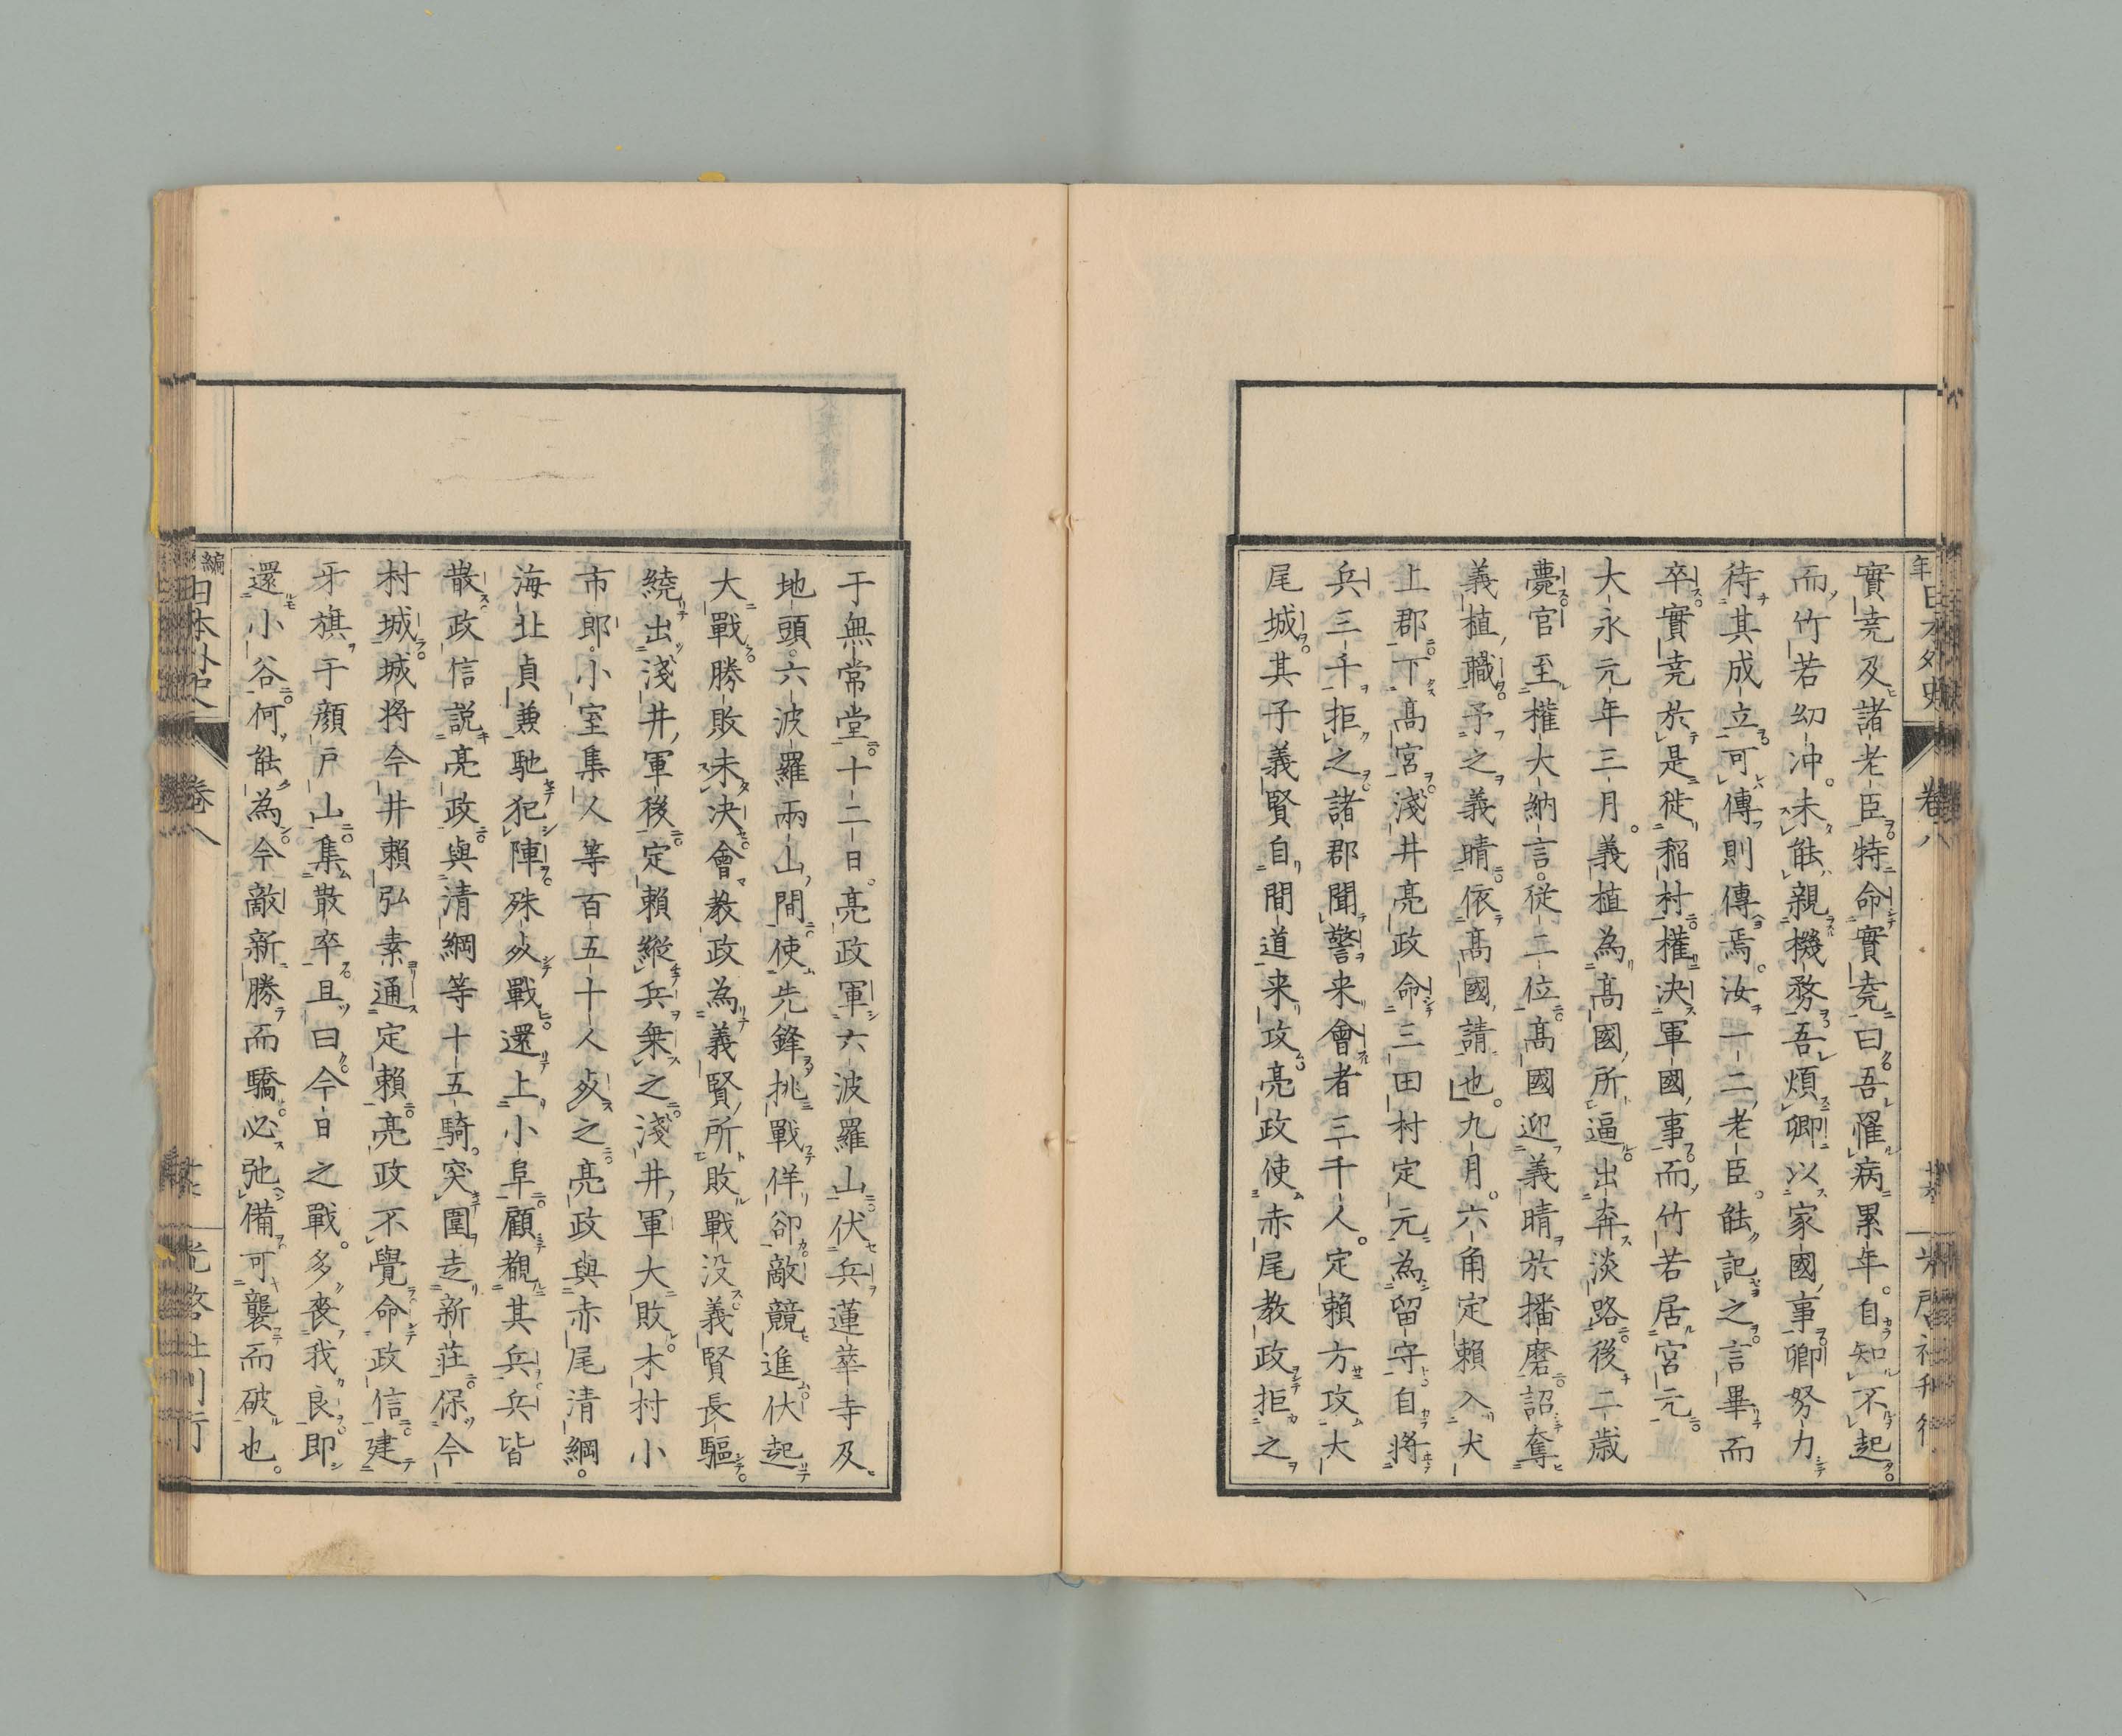 實堯及諸老臣特命實堯曰吾罹病累年。自知不起
而竹若幼冲。未能親機務吾煩卿以家國事卿努力
待其成立可傳則傳焉。汝一二老臣。能記之言畢而
卒實堯於是徙稻村權決軍國事而竹若居宮元
大永元年三月。義植為髙國所逼出奔淡路後二歳
薨官至權大納言。從二位髙國迎義晴於播磨詔奪
義植職予之義晴依髙國請也。九月。六角定賴入犬
上郡下髙宮淺井亮政命三田村定元為留守自將
兵三千拒之諸郡聞警来會者三千人。定賴方攻大
尾城其子義賢自間道来攻亮政使赤尾教政拒之
于無常堂十二日。亮政軍六波羅山伏兵蓮華寺及
地頭。六波羅兩山間使先鋒挑戰佯卻敵競進伏起
大戰勝敗未決會教政為義賢所敗戰没義賢長驅
繞出淺井軍後定賴縱兵乗之淺井軍大敗木村小
市郎。小室集人等百五十人死之亮政與赤尾清綱。
海北貞兼馳犯陣殊死戰還上小阜顧觀其兵兵皆
散政信説亮政與清綱等十五騎。突圍走新莊保今
村城城將今井賴弘素通定賴亮政不覺命政信建
牙旗于顔戸山集散卒且曰今日之戰。多喪我良即
還小谷何能為今敵新勝而驕必弛備可襲而破也。
卷八
卷八